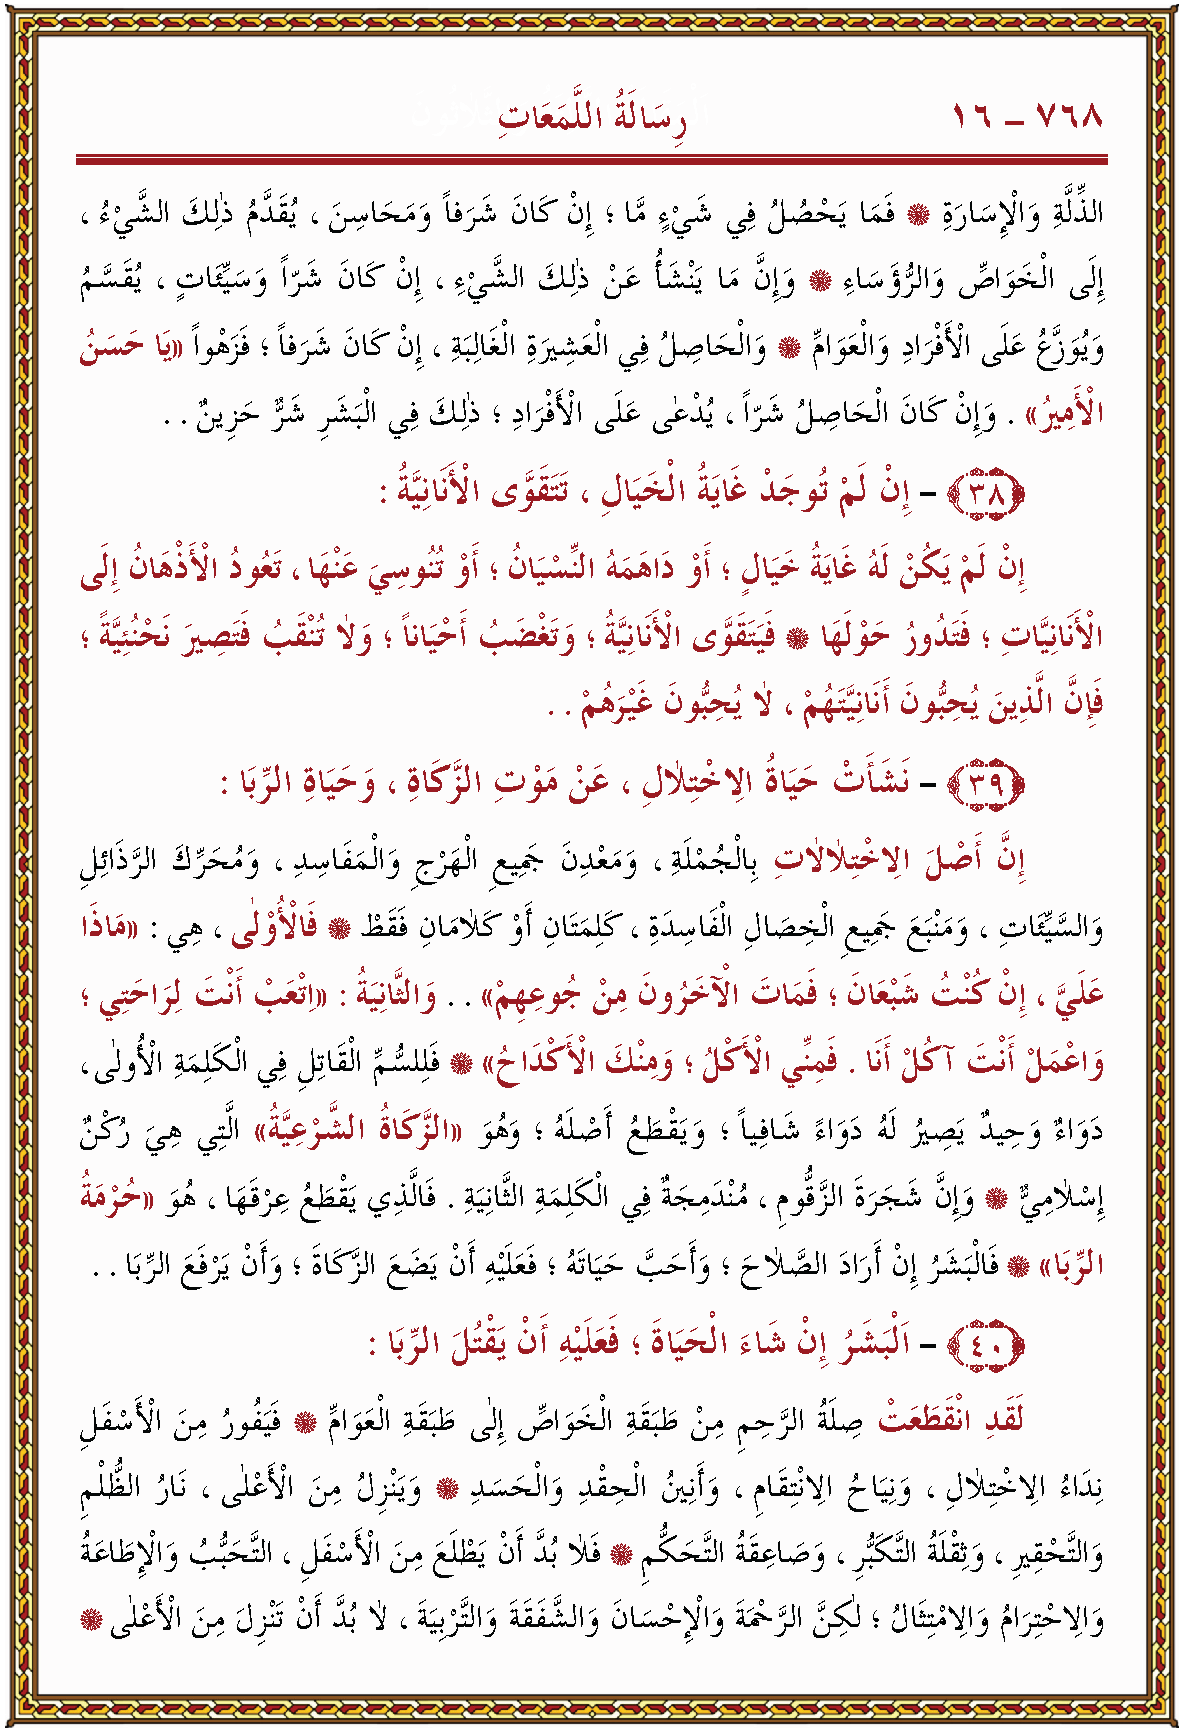 ٧٦٨ – ١٦ رِسَالَةُ اللَّمَعَاتِ
الذِّلَّةِ وَالْإِسَارَةِ ۞ فَمَا يَحْصُلُ فِي شَيْءٍ مَّا ؛ إِنْ كَانَ شَرَفاً وَمَحَاسِنَ ، يُقَدَّمُ ذٰلِكَ الشَّيْءُ ،
إِلَى الْخَوَاصِّ وَالرُّؤَسَاءِ ۞ وَإِنَّ مَا يَنْشَأُ عَنْ ذٰلِكَ الشَّيْءِ ، إِنْ كَانَ شَرّاً وَسَيِّئَاتٍ ، يُقَسَّمُ
وَيُوَزَّعُ عَلَى الْأَفْرَادِ وَالْعَوَامِّ ۞ وَالْحَاصِلُ فِي الْعَشِيرَةِ الْغَالِبَةِ ، إِنْ كَانَ شَرَفاً ؛ فَزَهْواً «يَا حَسَنُ
الْأَمِيرُ» . وَإِنْ كَانَ الْحَاصِلُ شَرّاً ، يُدْعٰى عَلَى الْأَفْرَادِ ؛ ذٰلِكَ فِي الْبَشَرِ شَرٌّ حَزِينٌ . .
﴿٣٨﴾ – إِنْ لَمْ تُوجَدْ غَايَةُ الْخَيَالِ ، تَتَقَوَّى الْأَنَانِيَّةُ :
إِنْ لَمْ يَكُنْ لَهُ غَايَةُ خَيَالٍ ؛ أَوْ دَاهَمَهُ النِّسْيَانُ ؛ أَوْ تُنُوسِيَ عَنْهَا ، تَعُودُ الْأَذْهَانُ إِلَى
الْأَنَانِيَّاتِ ؛ فَتَدُورُ حَوْلَهَا ۞ فَيَتَقَوَّى الْأَنَانِيَّةُ ؛ وَتَغْضَبُ أَحْيَاناً ؛ وَلاٰ تُنْقَبُ فَتَصِيرَ نَحْنُئِيَّةً ؛
فَإِنَّ الَّذِينَ يُحِبُّونَ أَنَانِيَّتَهُمْ ، لاٰ يُحِبُّونَ غَيْرَهُمْ . .
﴿٣٩﴾ – نَشَأَتْ حَيَاةُ الاِخْتِلاٰلِ ، عَنْ مَوْتِ الزَّكَاةِ ، وَحَيَاةِ الرِّبَا :
إِنَّ أَصْلَ الاِخْتِلاٰلاٰتِ بِالْجُمْلَةِ ، وَمَعْدِنَ جَمِيعِ الْهَرْجِ وَالْمَفَاسِدِ ، وَمُحَرِّكَ الرَّذَائِلِ
وَالسَّيِّئَاتِ ، وَمَنْبَعَ جَمِيعِ الْخِصَالِ الْفَاسِدَةِ ، كَلِمَتَانِ أَوْ كَلاٰمَانِ فَقَطْ ۞ فَالْأُوْلٰى ، هِي : «مَاذَا
عَلَيَّ ، إِنْ كُنْتُ شَبْعَانَ ؛ فَمَاتَ الْآخَرُونَ مِنْ جُوعِهِمْ» . . وَالثَّانِيَةُ : «اِتْعَبْ أَنْتَ لِرَاحَتِي ؛
وَاعْمَلْ أَنْتَ آكُلْ أَنَا . فَمِنِّي الْأَكْلُ ؛ وَمِنْكَ الْأَكْدَاحُ» ۞ فَلِلسُّمِّ الْقَاتِلِ فِي الْكَلِمَةِ الْأُولٰى ،
دَوَاءٌ وَحِيدٌ يَصِيرُ لَهُ دَوَاءً شَافِياً ؛ وَيَقْطَعُ أَصْلَهُ ؛ وَهُوَ «الزَّكَاةُ الشَّرْعِيَّةُ» الَّتِي هِيَ رُكْنٌ
إِسْلاٰمِيٌّ ۞ وَإِنَّ شَجَرَةَ الزَّقُّومِ ، مُنْدَمِجَةٌ فِي الْكَلِمَةِ الثَّانِيَةِ . فَالَّذِي يَقْطَعُ عِرْقَهَا ، هُوَ «حُرْمَةُ
الرِّبَا» ۞ فَالْبَشَرُ إِنْ أَرَادَ الصَّلاٰحَ ؛ وَأَحَبَّ حَيَاتَهُ ؛ فَعَلَيْهِ أَنْ يَضَعَ الزَّكَاةَ ؛ وَأَنْ يَرْفَعَ الرِّبَا . .
﴿٤٠﴾ – اَلْبَشَرُ إِنْ شَاءَ الْحَيَاةَ ؛ فَعَلَيْهِ أَنْ يَقْتُلَ الرِّبَا :
لَقَدِ انْقَطَعَتْ صِلَةُ الرَّحِمِ مِنْ طَبَقَةِ الْخَوَاصِّ إِلٰى طَبَقَةِ الْعَوَامِّ ۞ فَيَفُورُ مِنَ الْأَسْفَلِ
نِدَاءُ الاِخْتِلاٰلِ ، وَنِيَاحُ الاِنْتِقَامِ ، وَأَنِينُ الْحِقْدِ وَالْحَسَدِ ۞ وَيَنْزِلُ مِنَ الْأَعْلٰى ، نَارُ الظُّلْمِ
وَالتَّحْقِيرِ ، وَثِقْلَةُ التَّكَبُّرِ ، وَصَاعِقَةُ التَّحَكُّمِ ۞ فَلاٰ بُدَّ أَنْ يَطْلَعَ مِنَ الْأَسْفَلِ ، التَّحَبُّبُ وَالْإِطَاعَةُ
وَالاِحْتِرَامُ وَالاِمْتِثَالُ ؛ لٰكِنَّ الرَّحْمَةَ وَالْإِحْسَانَ وَالشَّفَقَةَ وَالتَّرْبِيَةَ ، لاٰ بُدَّ أَنْ تَنْزِلَ مِنَ الْأَعْلٰى ۞